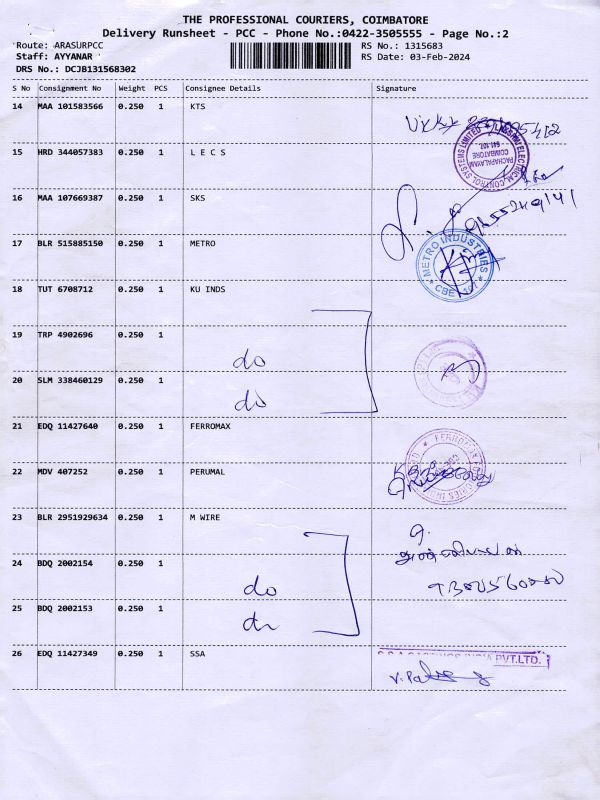 THE PROFESSIONAL COURIERS, COIMBATORE
Delivery Runsheet - PCC - Phone No.:0422-3505555 - Page No.:2
Route: ARASURPCC RS No.: 1315683
Staff: AYYANAR RS Date: 03-Feb-2024
DRS No.: DCJB131568302
S No Consignment No Weight PCS Consignee Details Signature
14 MAA 101583566 0.250 1 KTS
15 HRD 344057383 0.250 1 L E C S
PACHAPALAYAM
COIMBATORE
641 107.
16 MAA 107669387 0.250 1 SKS
17 BLR 515885150 0.250 1 METRO
METRO INDUSTRIES
18 TUT 6708712 0.250 1 KU INDS
19 TRP 4902696 0.250 1
do
20 SLM 338460129 0.250 1
do
21 EDQ 11427640 0.250 1 FERROMAX
22 MDV 407252 0.250 1 PERUMAL
23 BLR 2951929634 0.250 1 M WIRE
24 BDQ 2002154 0.250 1
do
25 BDQ 2002153 0.250 1
do
26 EDQ 11427349 0.250 1 SSA
PVT.LTD.